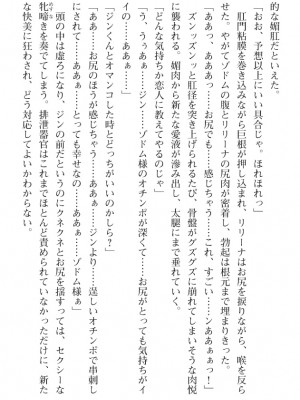 的な媚肛だといえた。
「おお、予想以上にいい具合じゃ。ほれほれっ」
肛門粘膜を巻き込みながら巨根が押し込まれ、リリーナはお尻を捩り、喉を反ら
せた。やがてゾドムの腹とリリーナの尻肉が密着し、勃起は根元まで埋まりきった。
「ああっ、ああっ……お尻でも……感じちゃう……これ、すごい……ンああぁぁっ！」
ズンッズンッと肛径を突き上げられるたび、骨盤がグズグズに崩れてしまいそうな肉悦
に襲われる。媚肉から新たな愛液が滲み出し、太腿にまで垂れていく。
「どんな気持ちか恋人に教えてやるのじゃ」
「う、うぅぁぁ……ジン……ゾドム様のオチンポが深くて……お尻がとっても気持ちがイ
イ……ああぁ……お尻のほうが感じちゃう……ああぁぁ……」
「ジンくんとオマンコした時とどっちがいいのかしら？」
「ああぁ……お尻ぃ……ああぁ……ジンより……逞しいオチンポで串刺し
にされて……あぁぁ……とっても幸せなの……ああぁ……ゾドム様ぁ」
頭の中は虚ろになり、ジンの前だというのにクネクネとお尻を揺すっては、セクシーな
牝啼きを奏でてしまう。排泄器官はこれまでほとんど責められていなかっただけに、新た
な快美に狂わされ、どう対応してよいかわからない。